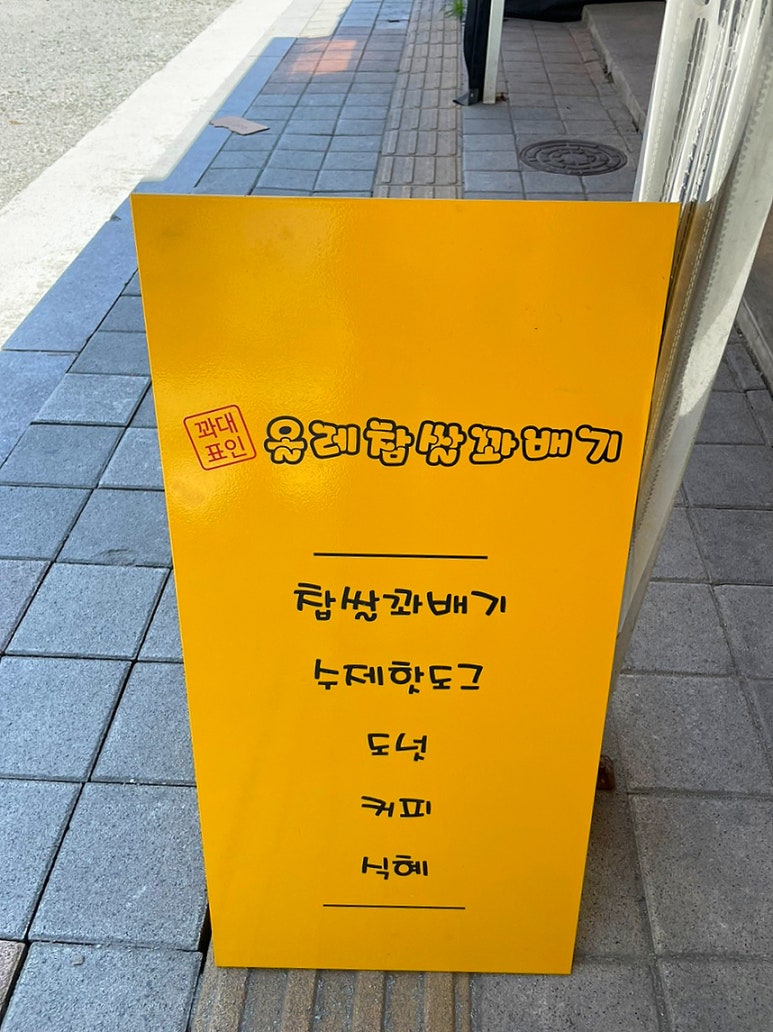 꽈대
표인
올레찹쌀꽈배기
찹쌀꽈배기
수제핫도그
도넛
커피
식혜